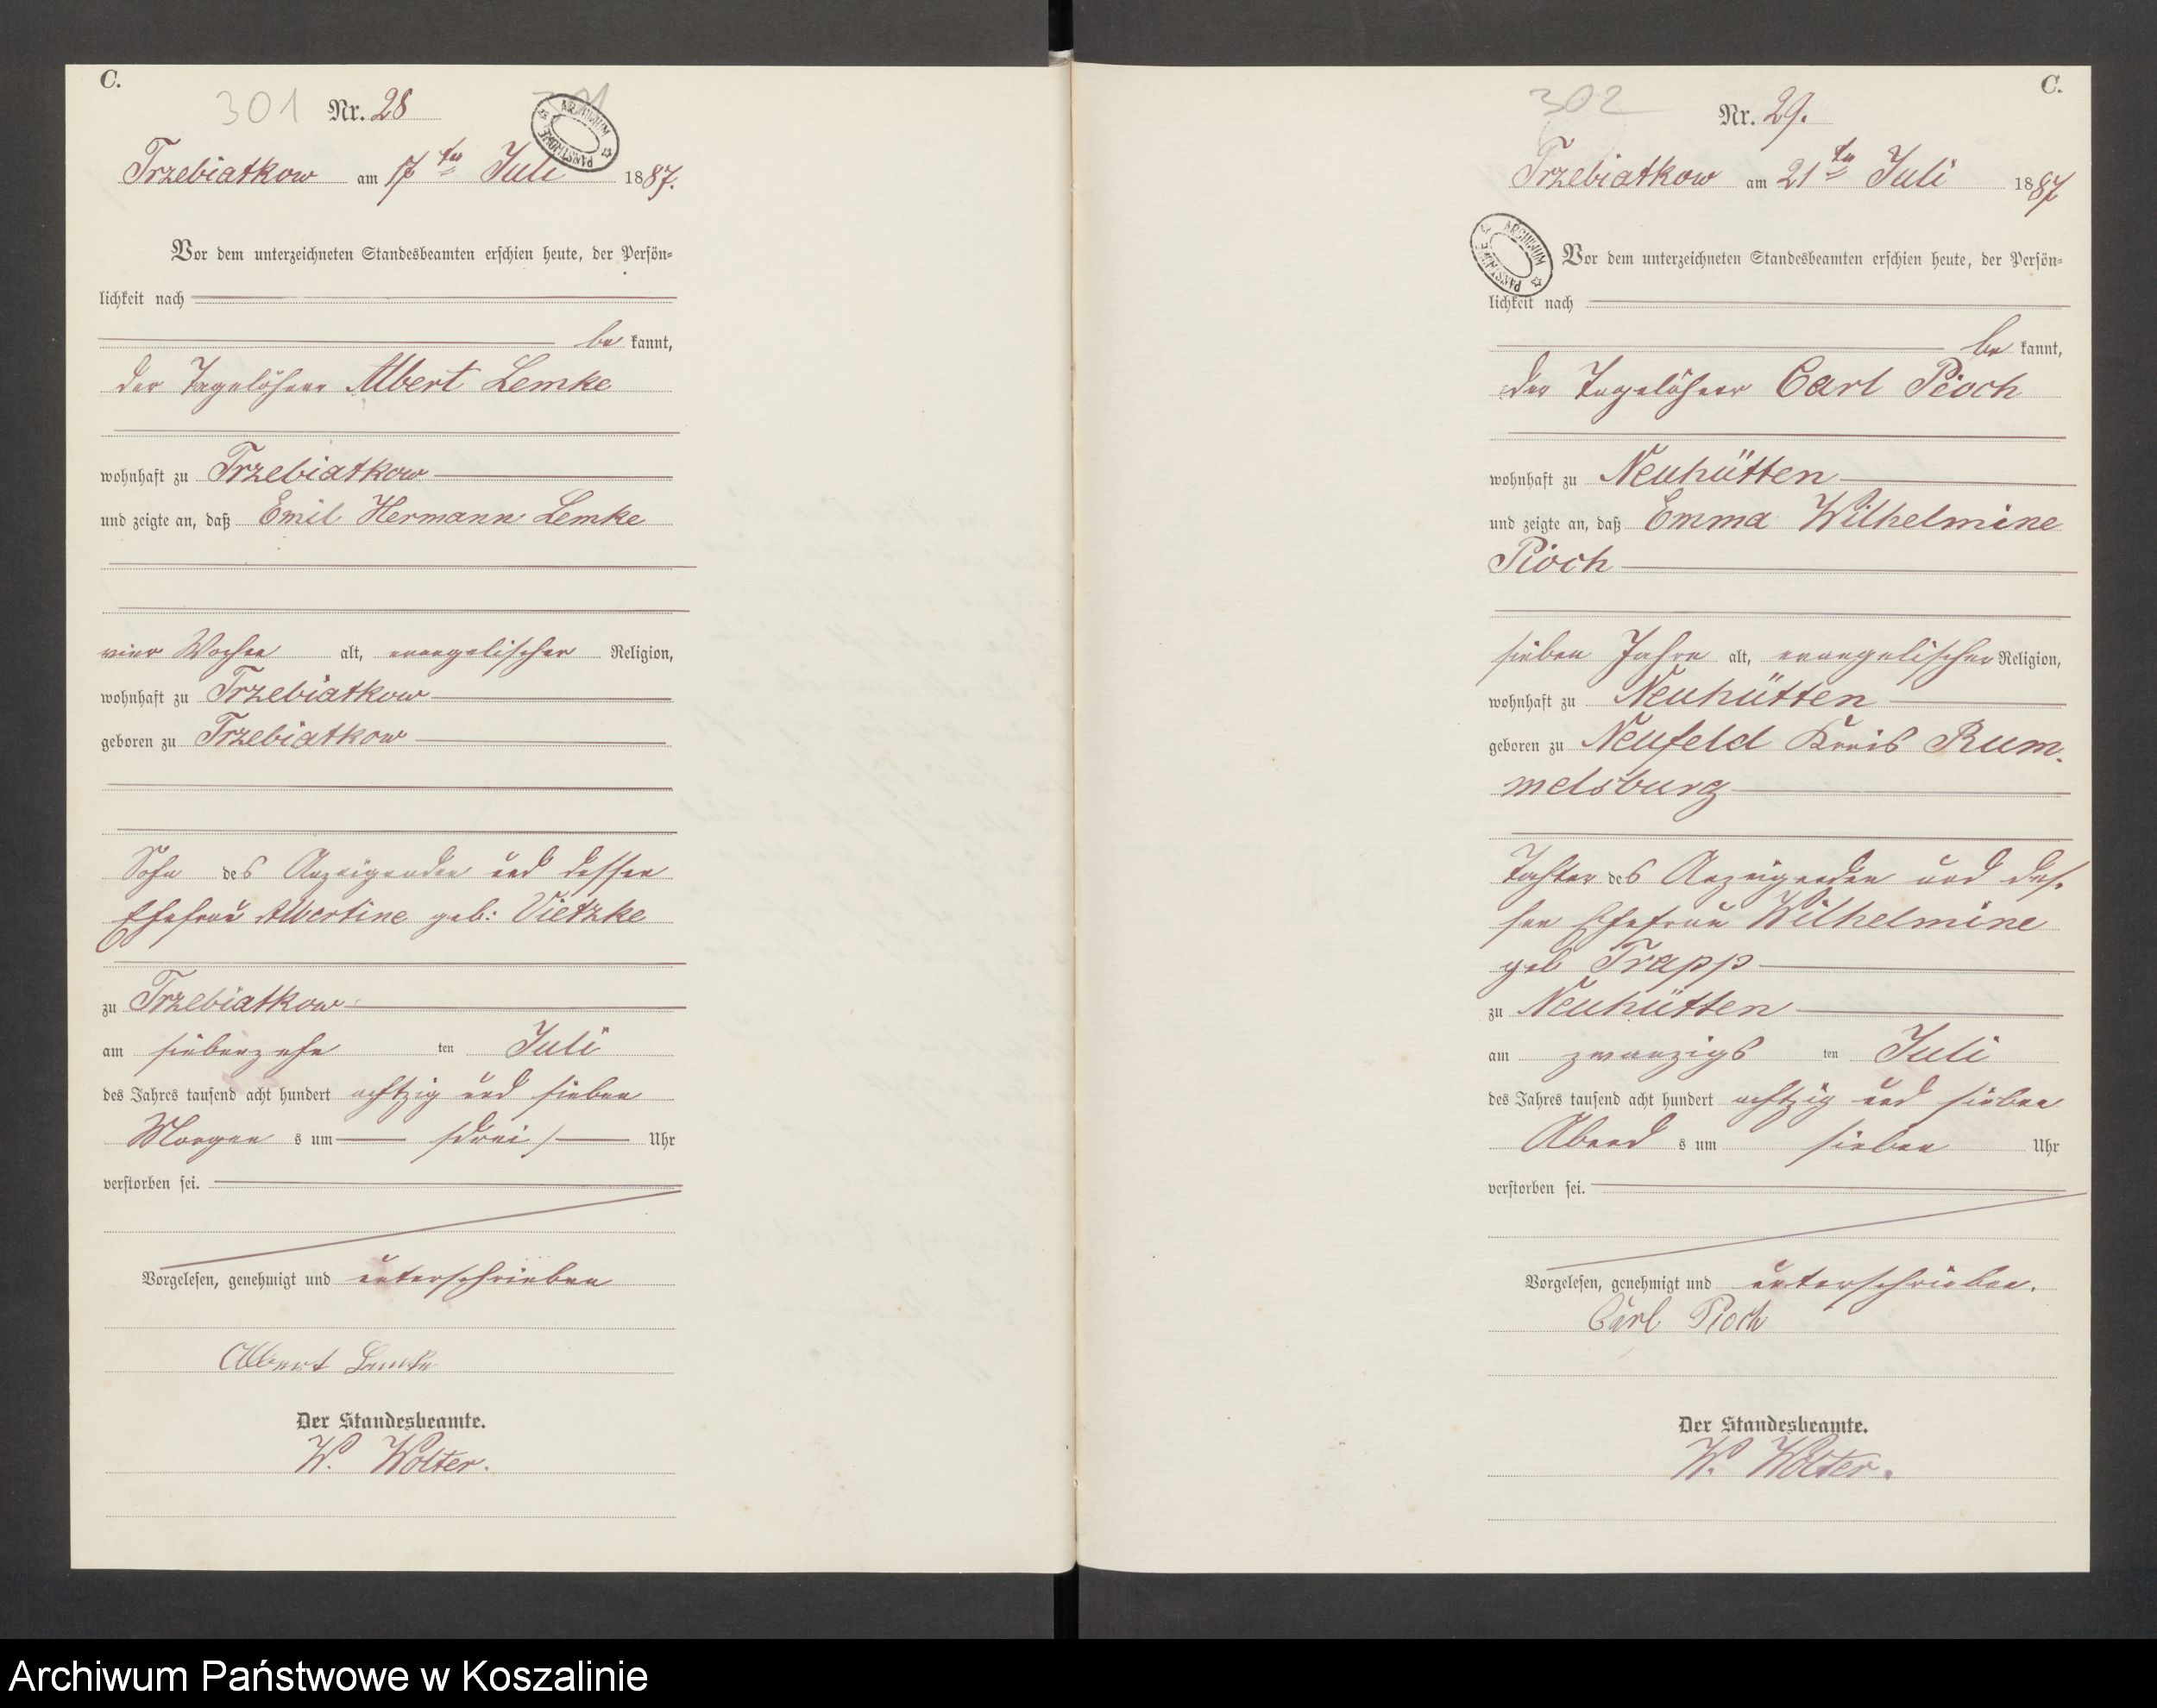 C.
301 Nr. 28
ARCHIWUM PAŃSTWOWE
Trzebiatkow am 17ten Juli 1887.
Vor dem unterzeichneten Standesbeamten erschien heute, der Persön-
lichkeit nach
be kannt,
der Tagelöhner Albert Lemke
wohnhaft zu Trzebiatkow
und zeigte an, daß Emil Hermann Lemke
vier Wochen alt, evangelischer Religion,
wohnhaft zu Trzebiatkow
geboren zu Trzebiatkow
Sohn des Anzeigenden und dessen
Ehefrau Albertine geb: Vietzke
zu Trzebiatkow
am siebenzehn ten Juli
des Jahres tausend acht hundert achtzig und sieben
Morgen s um drei Uhr
verstorben sei.
Vorgelesen, genehmigt und unterschrieben
Albert Lemke
Der Standesbeamte.
W. Wolter.
C.
302 Nr. 29.
Trzebiatkow am 21ten Juli 1887
ARCHIWUM PAŃSTWOWE
Vor dem unterzeichneten Standesbeamten erschien heute, der Persön-
lichkeit nach
be kannt,
der Tagelöhner Carl Pioch
wohnhaft zu Neuhütten
und zeigte an, daß Emma Wilhelmine
Pioch
sieben Jahre alt, evangelischer Religion,
wohnhaft zu Neuhütten
geboren zu Neufeld Kreis Rum-
melsburg
Tochter des Anzeigenden und des-
sen Ehefrau Wilhelmine
geb Trapp
zu Neuhütten
am zwanzigs ten Juli
des Jahres tausend acht hundert achtzig und sieben
Abend s um sieben Uhr
verstorben sei.
Vorgelesen, genehmigt und unterschrieben.
Carl Pioch
Der Standesbeamte.
W. Wolter.
Archiwum Państwowe w Koszalinie